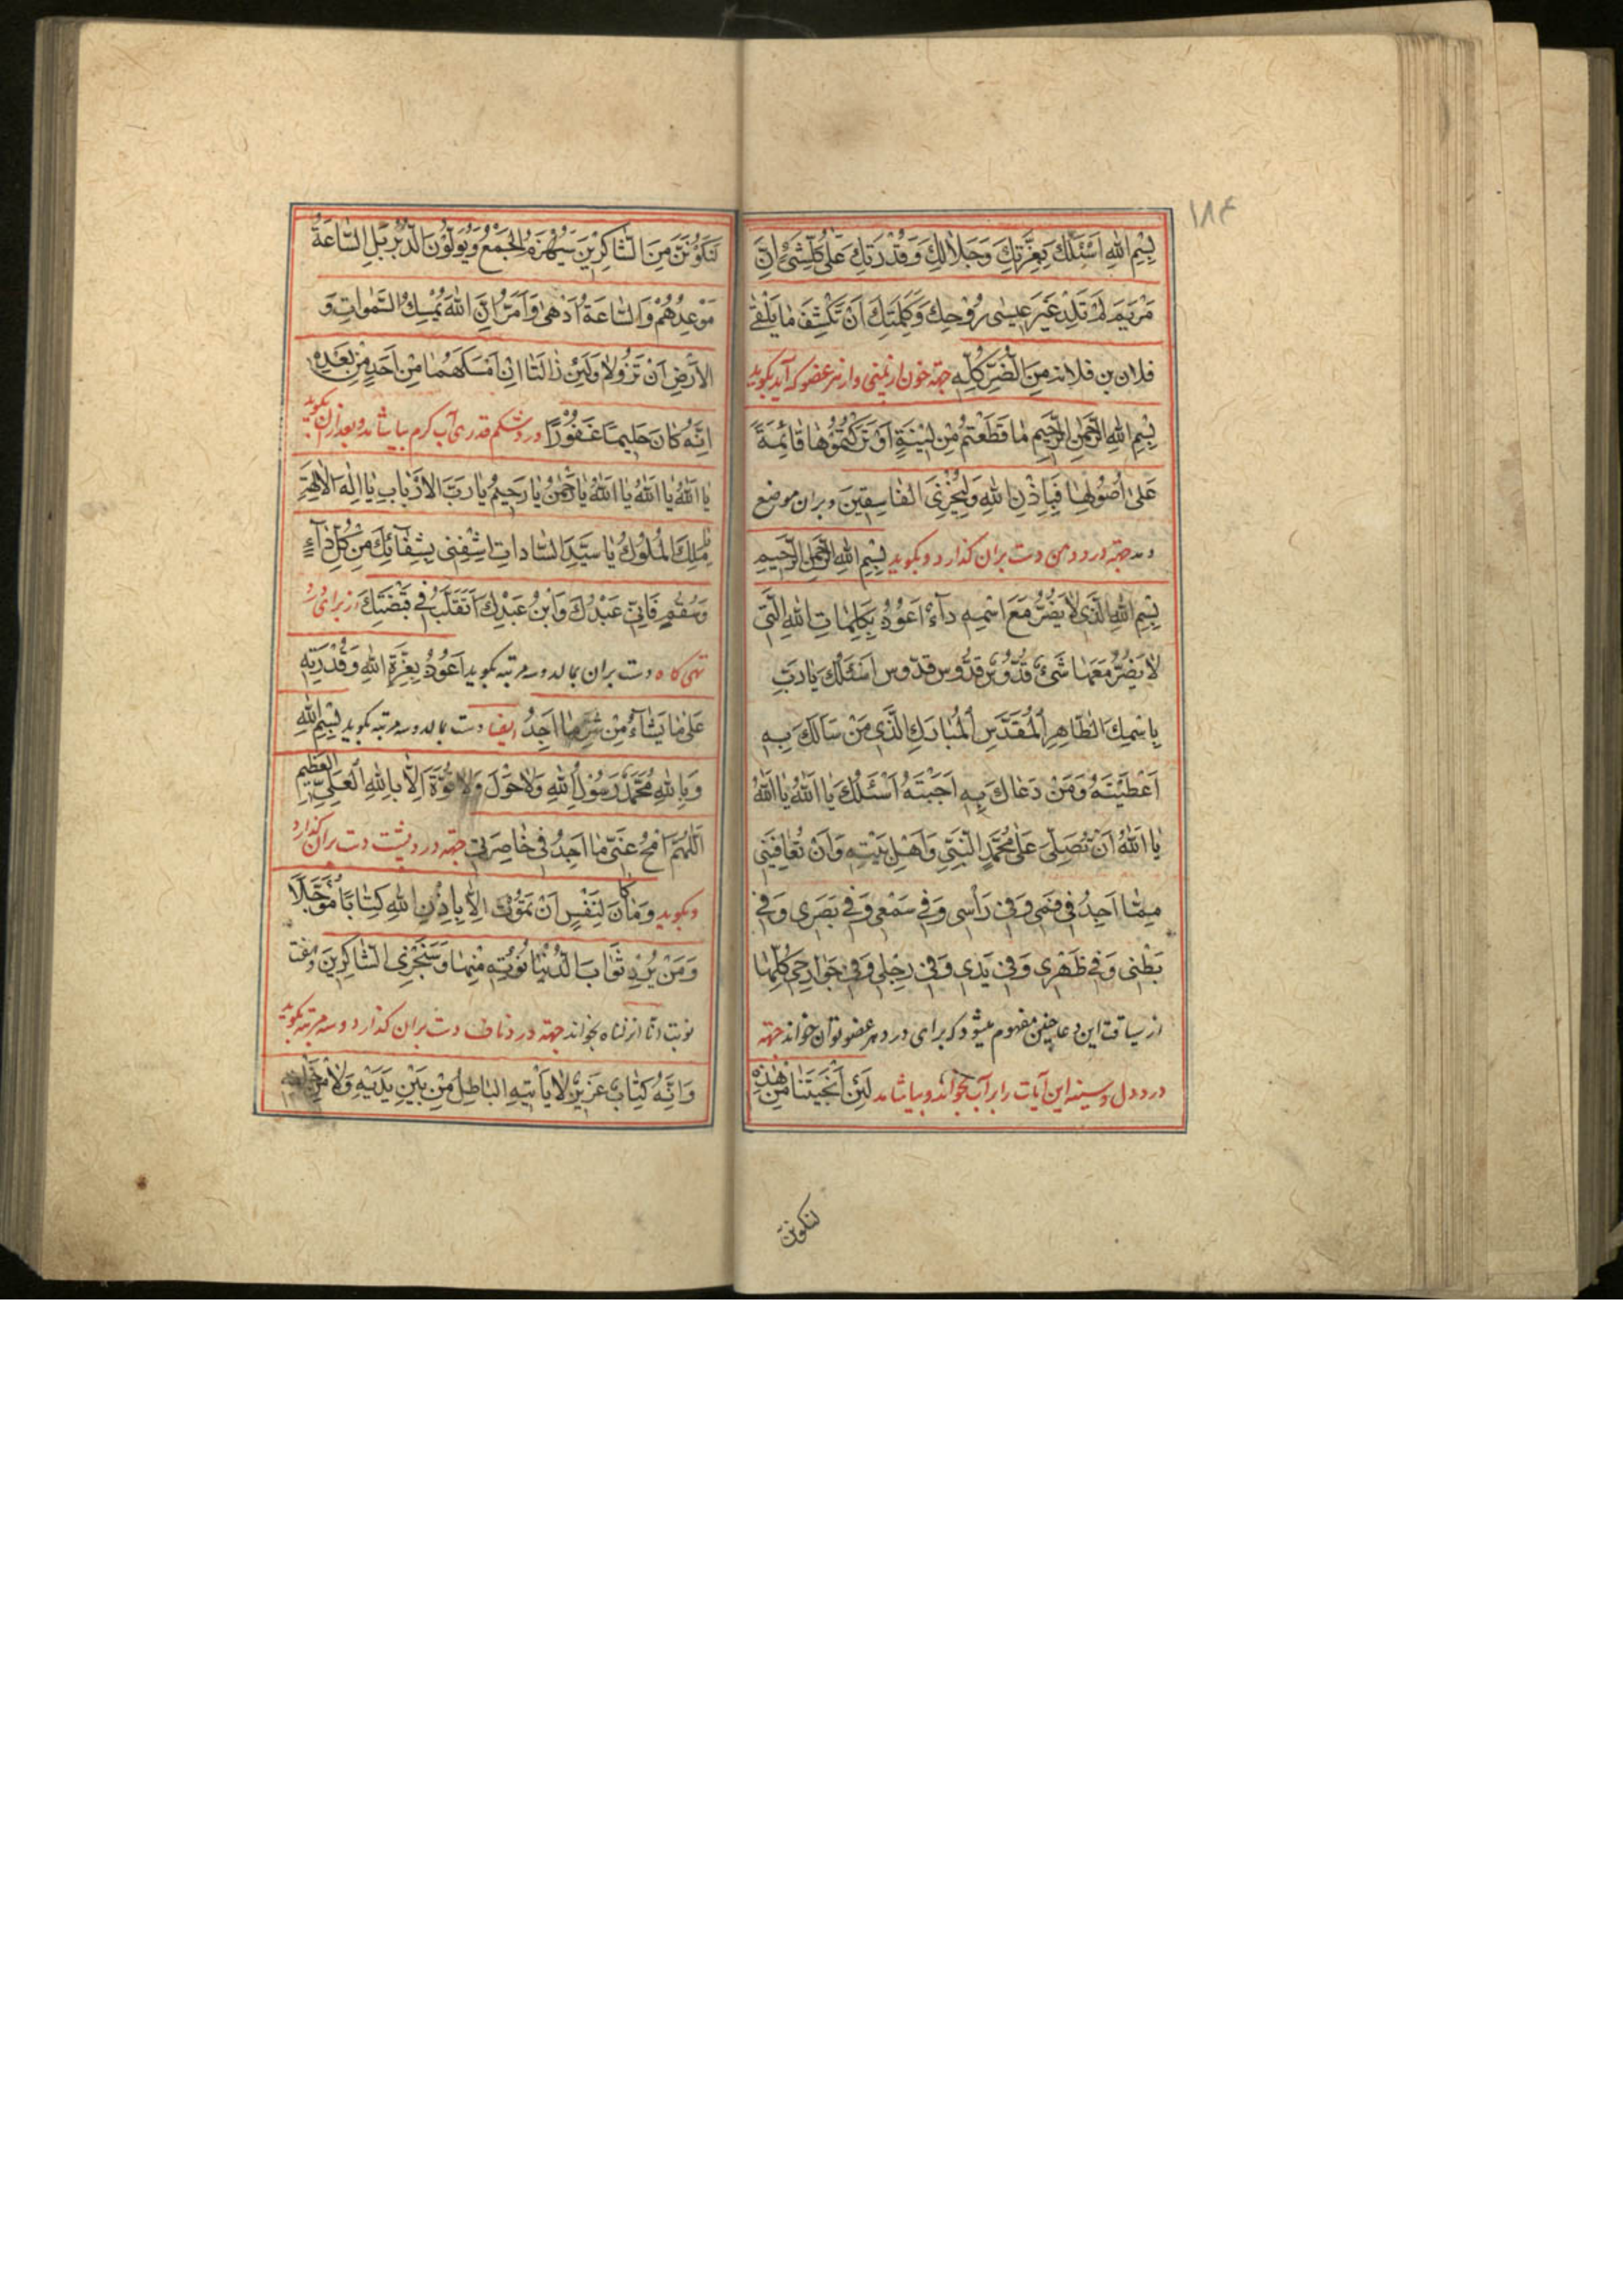 ۱۸۴
بِسْمِ اللهِ اَسْئَلُكَ بِعِزَّتِكَ وَجَلالِكَ وَقُدْرَتِكَ عَلى كُلِّشَیْءٍ اِنَّ
مَرْيَمَ لَمْ تَلِدْ غَيْرَ عيسٰى رُوْحِكَ وَكَلِمَتِكَ اَنْ تَكْشِفَ مٰا يَلْقٰى
فلان بن فلانه مِنَ الضُّرِّ كُلِّهِ جهته خون از بینی و از هر عضو که آید بگوید
بِسْمِ اللهِ الرَّحْمٰنِ الرَّحيمِ مٰا قَطَعْتُمْ مِنْ لينَةٍ اَوْ تَرَكْتُمُوْهٰا قٰائِمَةً
عَلىٰ اُصُوْلِهٰا فَبِاِذْنِ اللهِ وَلِيُخْزِيَ الْفٰاسِقينَ و بران موضع
دمد جهته درد دهن دست بران گذارد و بگوید بِسْمِ اللهِ الرَّحْمٰنِ الرَّحيمِ
بِسْمِ اللهِ الَّذي لاٰ يَضُرُّ مَعَ اسْمِهِ دٰآءٌ اَعُوْذُ بِكَلِمٰاتِ اللهِ الَّتي
لاٰ يَضُرُّ مَعَهٰا شَیْءٌ قُدُّوْسٌ قُدُّوس قدّوس اَسْئَلُكَ يٰا رَبِّ
بِاسْمِكَ الطّٰاهِرِ الْمُقَدَّسِ الْمُبٰارَكِ الَّذي مَنْ سَاَلَكَ بِهِ
اَعْطَيْتَهُ وَمَنْ دَعٰاكَ بِهِ اَجَبْتَهُ اَسْئَلُكَ يٰا اَللهُ يٰا اَللهُ
يٰا اَللهُ اَنْ تُصَلِّىَ عَلىٰ مُحَمَّدٍ النَّبِيِّ وَاَهْلِ بَيْتِهِ وَاَنْ تُعٰافِيَني
مِمّٰا اَجِدُ في فَمي وَفي رَأْسي وَفي سَمْعي وَفي بَصَري وَفي
بَطْني وَفي ظَهْري وَفي يَدي وَفي رِجْلي وَفي جَوٰارِحي كُلِّهٰا
از سیاقت این دعا چنین مفهوم میشود که برای درد هر عضو توان خواند جهته
درد دل و سینه این آیات را بر آب بخواند و بیاشامد لَئِنْ اَنْجَيْتَنٰا مِنْ هٰذِهِ
لنکونن
لَنَكُوْنَنَّ مِنَ الشّٰاكِرينَ سَيُهْزَمُ الْجَمْعُ وَيُوَلُّوْنَ الدُّبُرَ بَلِ السّٰاعَةُ
مَوْعِدُهُمْ وَالسّٰاعَةُ اَدْهىٰ وَاَمَرُّ اِنَّ اللهَ يُمْسِكُ السَّمٰوٰاتِ وَ
الْاَرْضَ اَنْ تَزُوْلاٰ وَلَئِنْ زٰالَتٰا اِنْ اَمْسَكَهُمٰا مِنْ اَحَدٍ مِنْ بَعْدِهِ
اِنَّهُ كٰانَ حَليمًا غَفُوْرًا درد شکم قدری آب گرم بیاشامد و بعد ازان بگوید
يٰا اَللهُ يٰا اَللهُ يٰا اَللهُ يٰا رَحْمٰنُ يٰا رَحيمُ يٰا رَبَّ الْاَرْبٰابِ يٰا اِلٰهَ الْاٰلِهَةِ
يٰا مَلِكَ الْمُلُوْكِ يٰا سَيِّدَ السّٰادٰاتِ اِشْفِني بِشِفٰآئِكَ مِنْ كُلِّ دٰآءٍ
وَسُقْمٍ فَاِنّي عَبْدُكَ وَابْنُ عَبْدِكَ اَتَقَلَّبُ في قَبْضَتِكَ از برای درد
تهی کاه دست بران بمالد و سه مرتبه بگوید اَعُوْذُ بِعِزَّةِ اللهِ وَقُدْرَتِهِ
عَلىٰ مٰا يَشٰآءُ مِنْ شَرِّ مٰا اَجِدُ ایضا دست بمالد و سه مرتبه بگوید بِسْمِ اللهِ
وَبِاللهِ مُحَمَّدٌ رَسُوْلُ اللهِ وَلاٰ حَوْلَ وَلاٰ قُوَّةَ اِلاّٰ بِاللهِ الْعَلِيِّ الْعَظيمِ
اَللّٰهُمَّ امْحُ عَنّي مٰا اَجِدُ في خٰاصِرَتي جهته درد پشت دست بران گذارد
و بگوید وَمٰا كٰانَ لِنَفْسٍ اَنْ تَمُوْتَ اِلاّٰ بِاِذْنِ اللهِ كِتٰابًا مُؤَجَّلاً
وَمَنْ يُرِدْ ثَوٰابَ الدُّنْيٰا نُؤْتِهِ مِنْهٰا وَسَنَجْزِي الشّٰاكِرينَ و هفت
نوبت انا انزلناه بخواند جهته درد ناف دست بران گذارد و سه مرتبه بگوید
وَاِنَّهُ كِتٰابٌ عَزيزٌ لاٰ يَأْتيهِ الْبٰاطِلُ مِنْ بَيْنِ يَدَيْهِ وَلاٰ مِنْ خَلْفِهِ